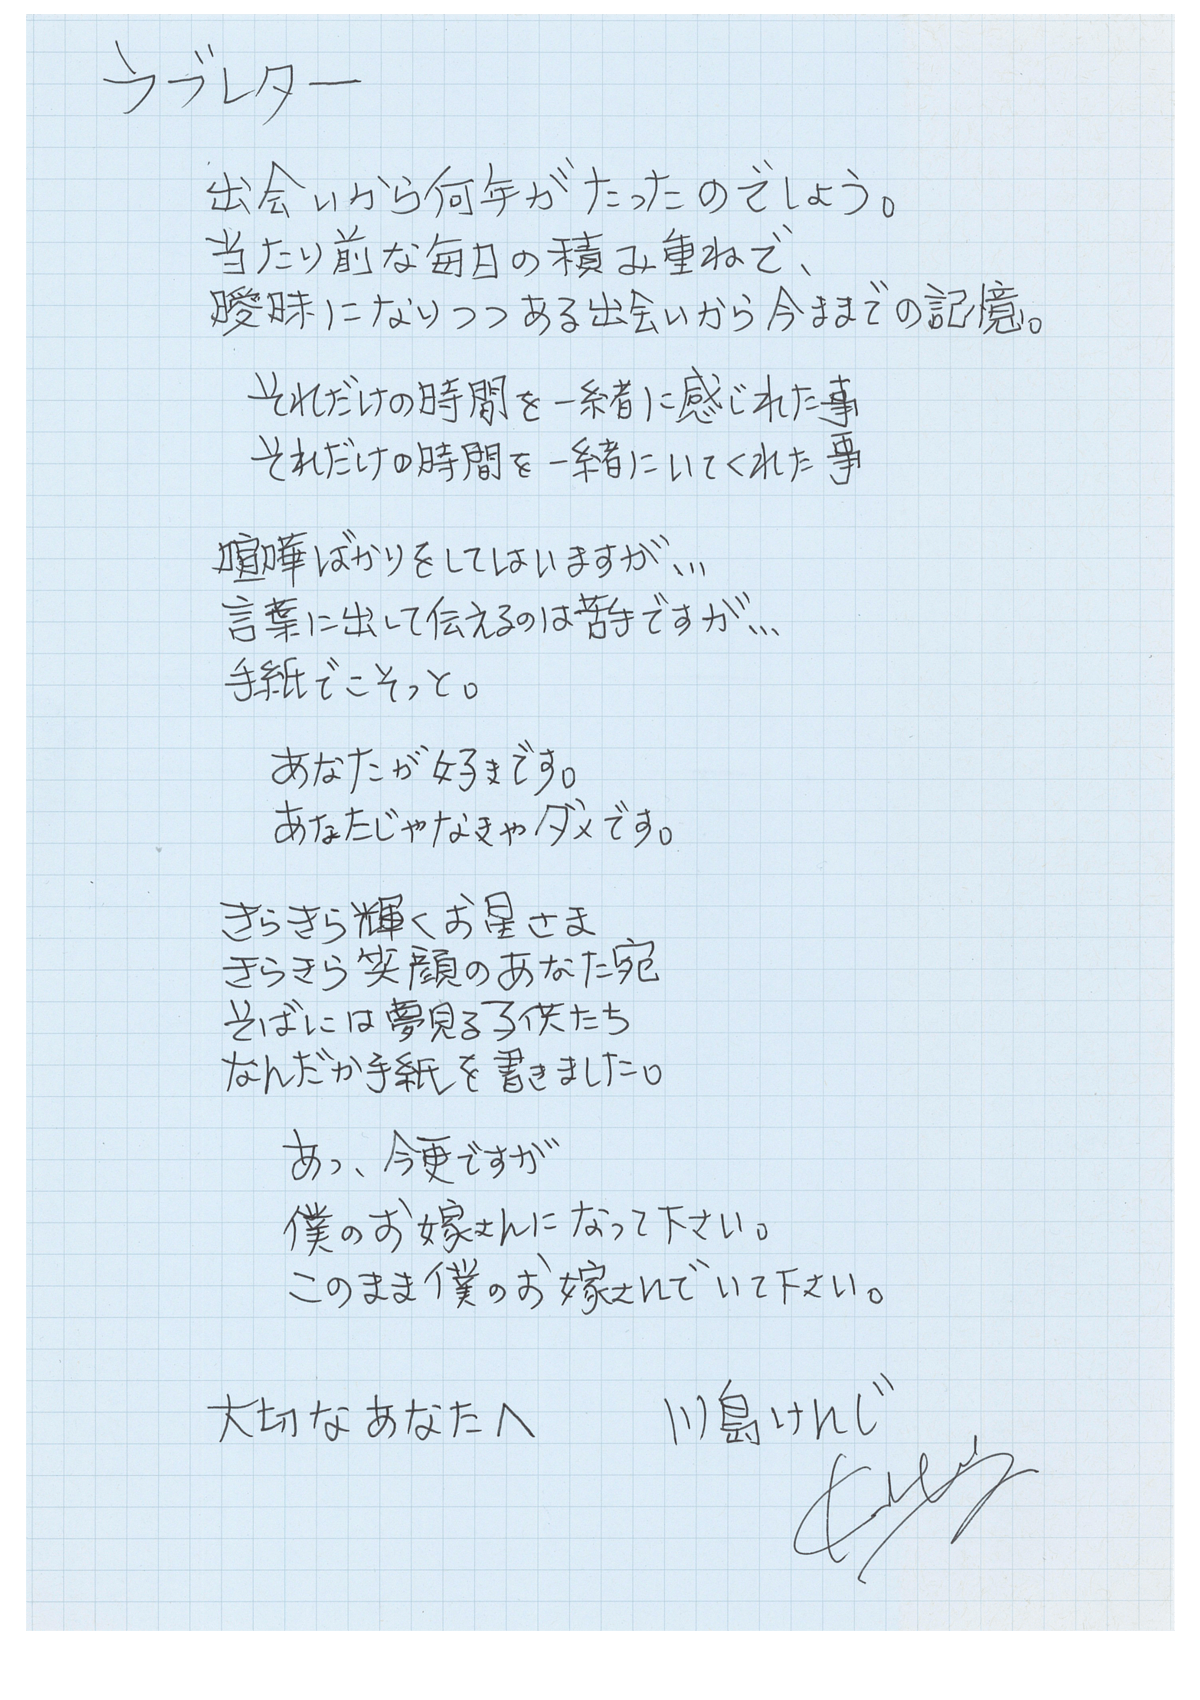 ラブレター
出会いから何年がたったのでしょう。
当たり前な毎日の積み重ねで、
曖昧になりつつある出会いから今までの記憶。
それだけの時間を一緒に感じれた事
それだけの時間を一緒にいてくれた事
喧嘩ばかりをしてはいますが、、、
言葉に出して伝えるのは苦手ですが、、、
手紙でこそっと。
あなたが好きです。
あなたじゃなきゃダメです。
きらきら輝くお星さま
きらきら笑顔のあなた宛
そばには夢見る子供たち
なんだか手紙を書きました。
あっ、今更ですが
僕のお嫁さんになって下さい。
このまま僕のお嫁さんでいて下さい。
大切なあなたへ 川島けんじ